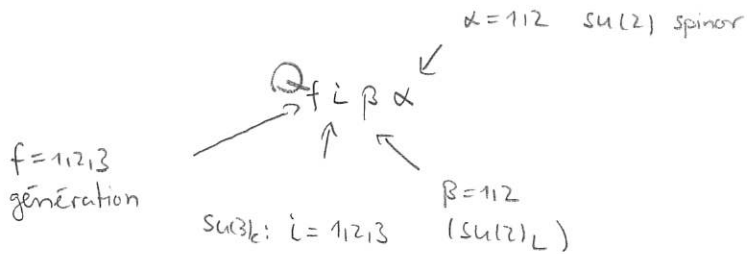 α=1,2 su(2) spinor
Q f i β α
f=1,2,3
génération
β=1,2
SU(3)c: i=1,2,3
(SU(2)L)